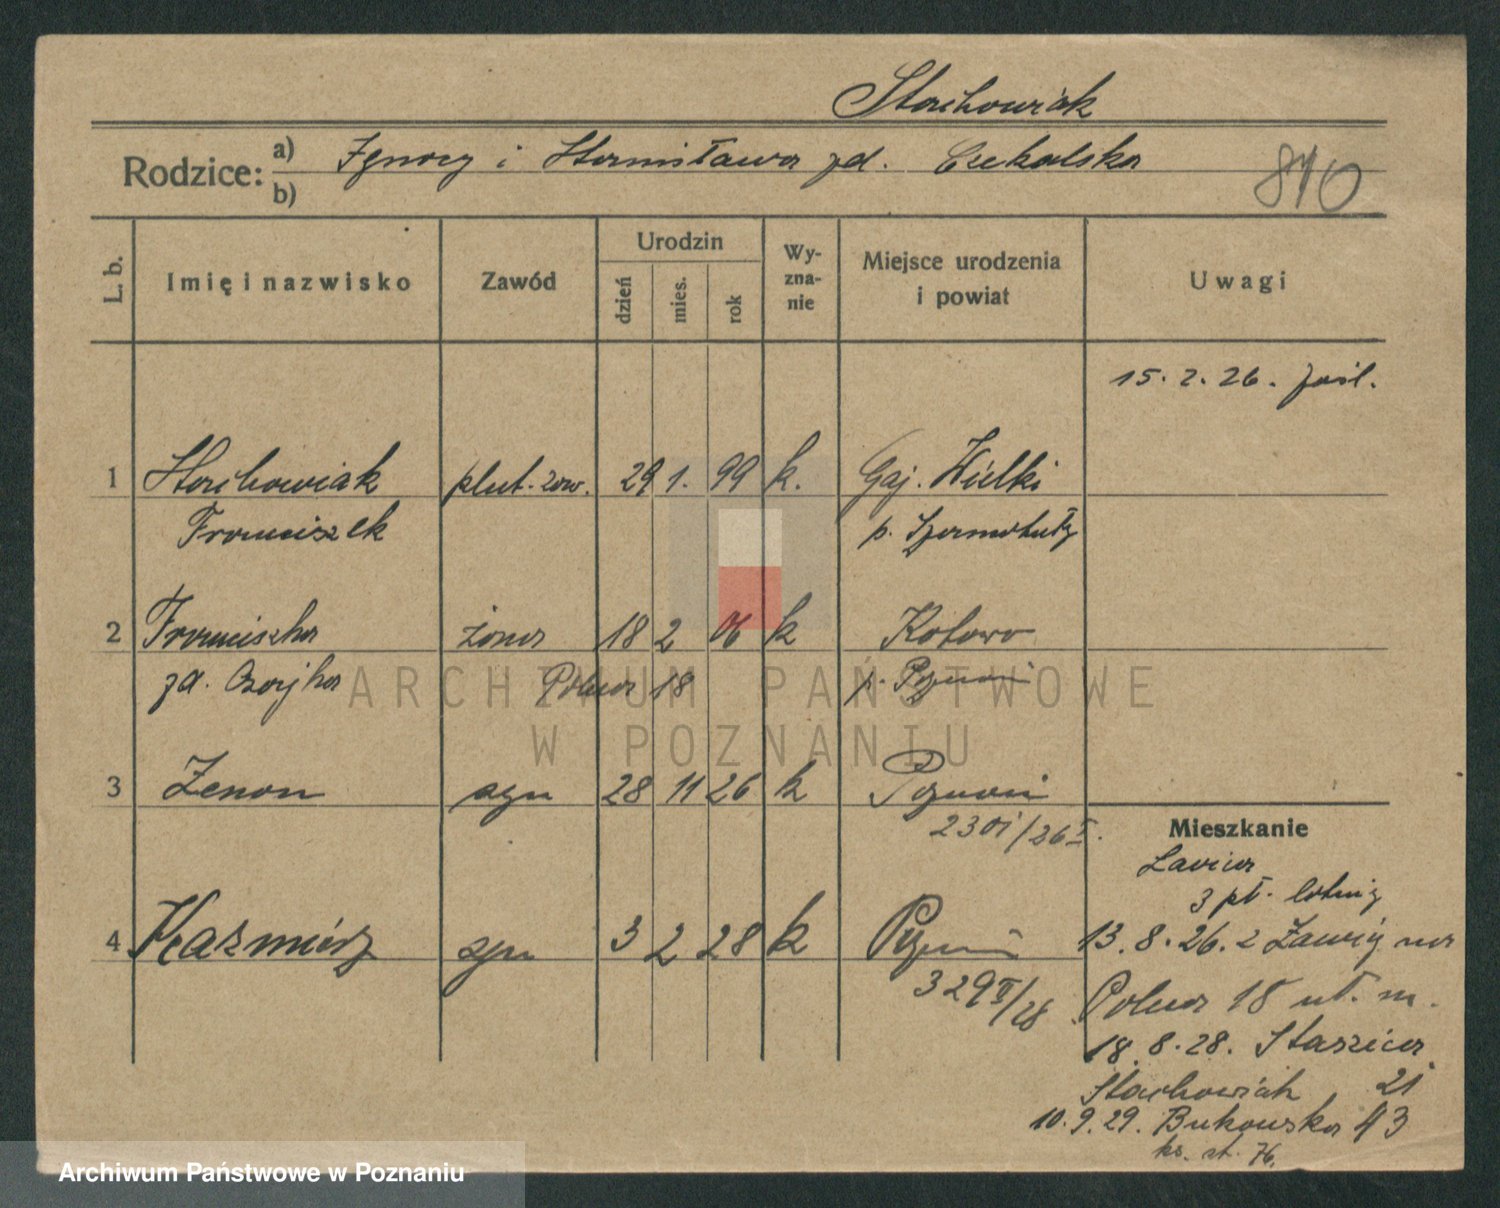 Stachowiak
Rodzice: a) Ignacy i Stanisława zd. Czekalska
b)
870
L. b. Imię i nazwisko Zawód Urodzin dzień mies. rok Wy-zna-nie Miejsce urodzenia i powiat Uwagi
15. 2. 26. zaśl.
1 Stachowiak plut. zaw. 29 1. 99 k. Gaj. Wielki
Franciszek p. Szamotuły
2 Franciszka żona 18 2 06 k Kotowo
zd. Polna 18 p. Poznań
3 Zenon syn 28 11 26 k Poznań
2301/26
Mieszkanie
Ławica
3 pł. lotniczy
4 Kaźmierz syn 3 2 28 k Poznań
329 II/28
13. 8. 26. z Ławicy na
Polna 18 ut. m.
18. 8. 28. Staszica 21
Stachowiak
10. 9. 29. Bukowska 43
ks. st. 76.
ARCHIWUM PAŃSTWOWE
W POZNANIU
Archiwum Państwowe w Poznaniu